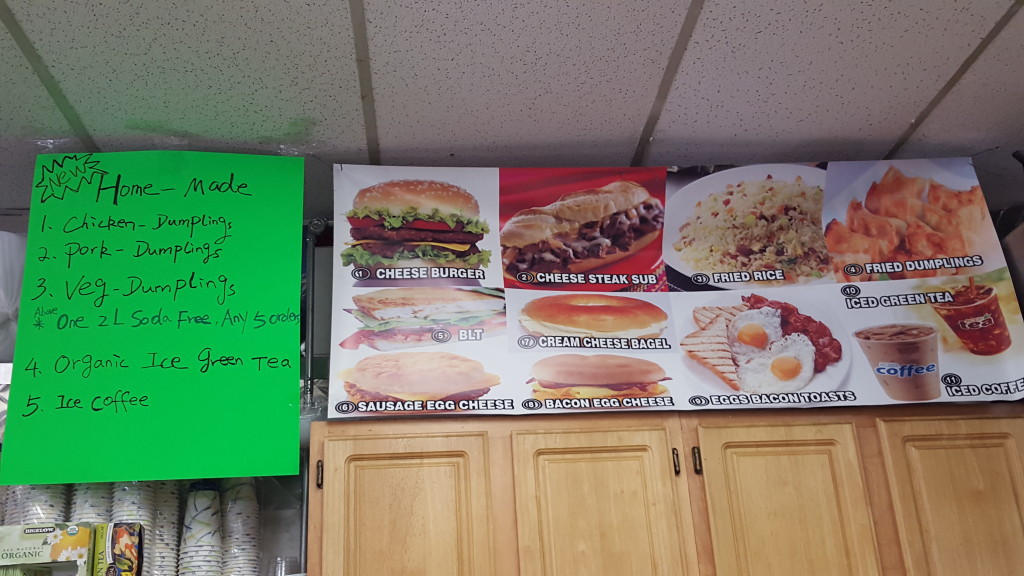 New Home-Made
1. Chicken-Dumplings
2. Pork-Dumplings
3. Veg-Dumplings
Above
* One 2L Soda Free, Any 5 orders
4. Organic Ice green Tea
5. Ice coffee
1 CHEESE BURGER
2 CHEESE STEAK SUB
3 FRIED RICE
4 FRIED DUMPLINGS
5 BLT
7 CREAM CHEESE BAGEL
10 ICED GREEN TEA
tea
coffee
6 SAUSAGE EGG CHEESE
8 BACON EGG CHEESE
9 EGGS BACON TOASTS
11 ICED COFFEE
BIGELOW
ORGANIC